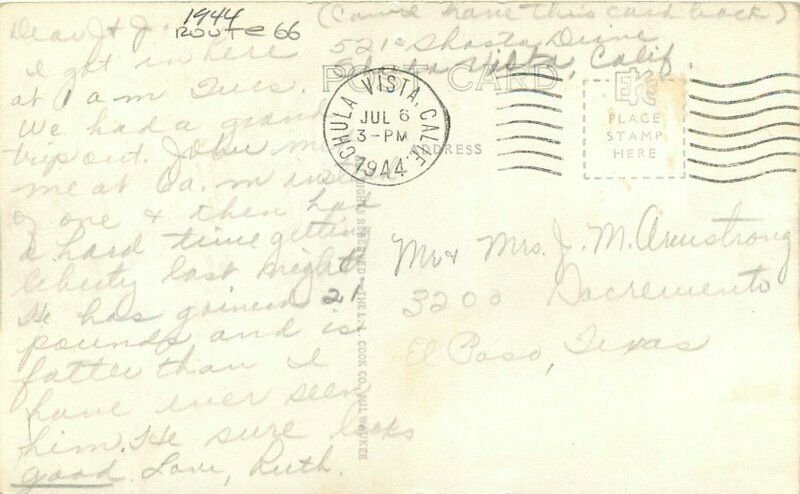 1944
Route 66
(Can I have this card back)
Dear J + J.
I got in here
at 1 a m Tues.
We had a grand
trip out. John met
me at 6 a. m instead
of one & then had
a hard time getting
liberty last night
He has gained 21
pounds and is
fatter than I
have ever seen
him. He sure looks
good. Love, Ruth.
521c Shasta Drive
Chula Vista, Calif.
POST CARD
CHULA VISTA, CALIF.
JUL 6
3-PM
1944
EKC
PLACE
STAMP
HERE
ADDRESS
RIGHTS RESERVED - THE L. L. COOK CO. MILWAUKEE
Mr + Mrs. J. M. Armstrong
3200 Sacramento
El Paso, Texas